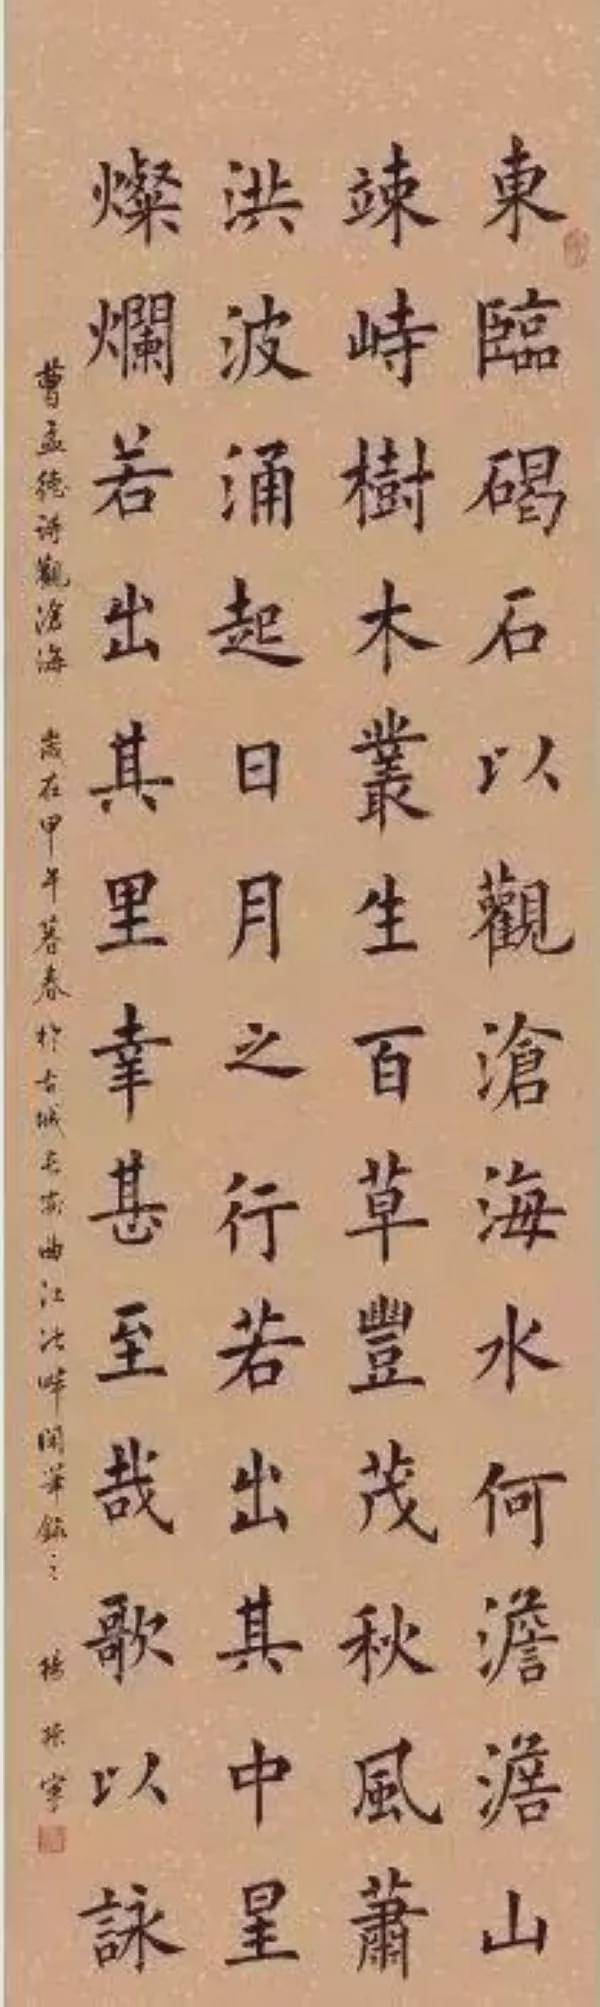 東臨碣石以觀滄海水何澹澹山
竦峙樹木叢生百草豐茂秋風蕭
洪波涌起日月之行若出其中星
燦爛若出其里幸甚至哉歌以詠
曹孟德詩觀滄海 歲在甲午暮春於古城長安曲江池畔 錄之 楊